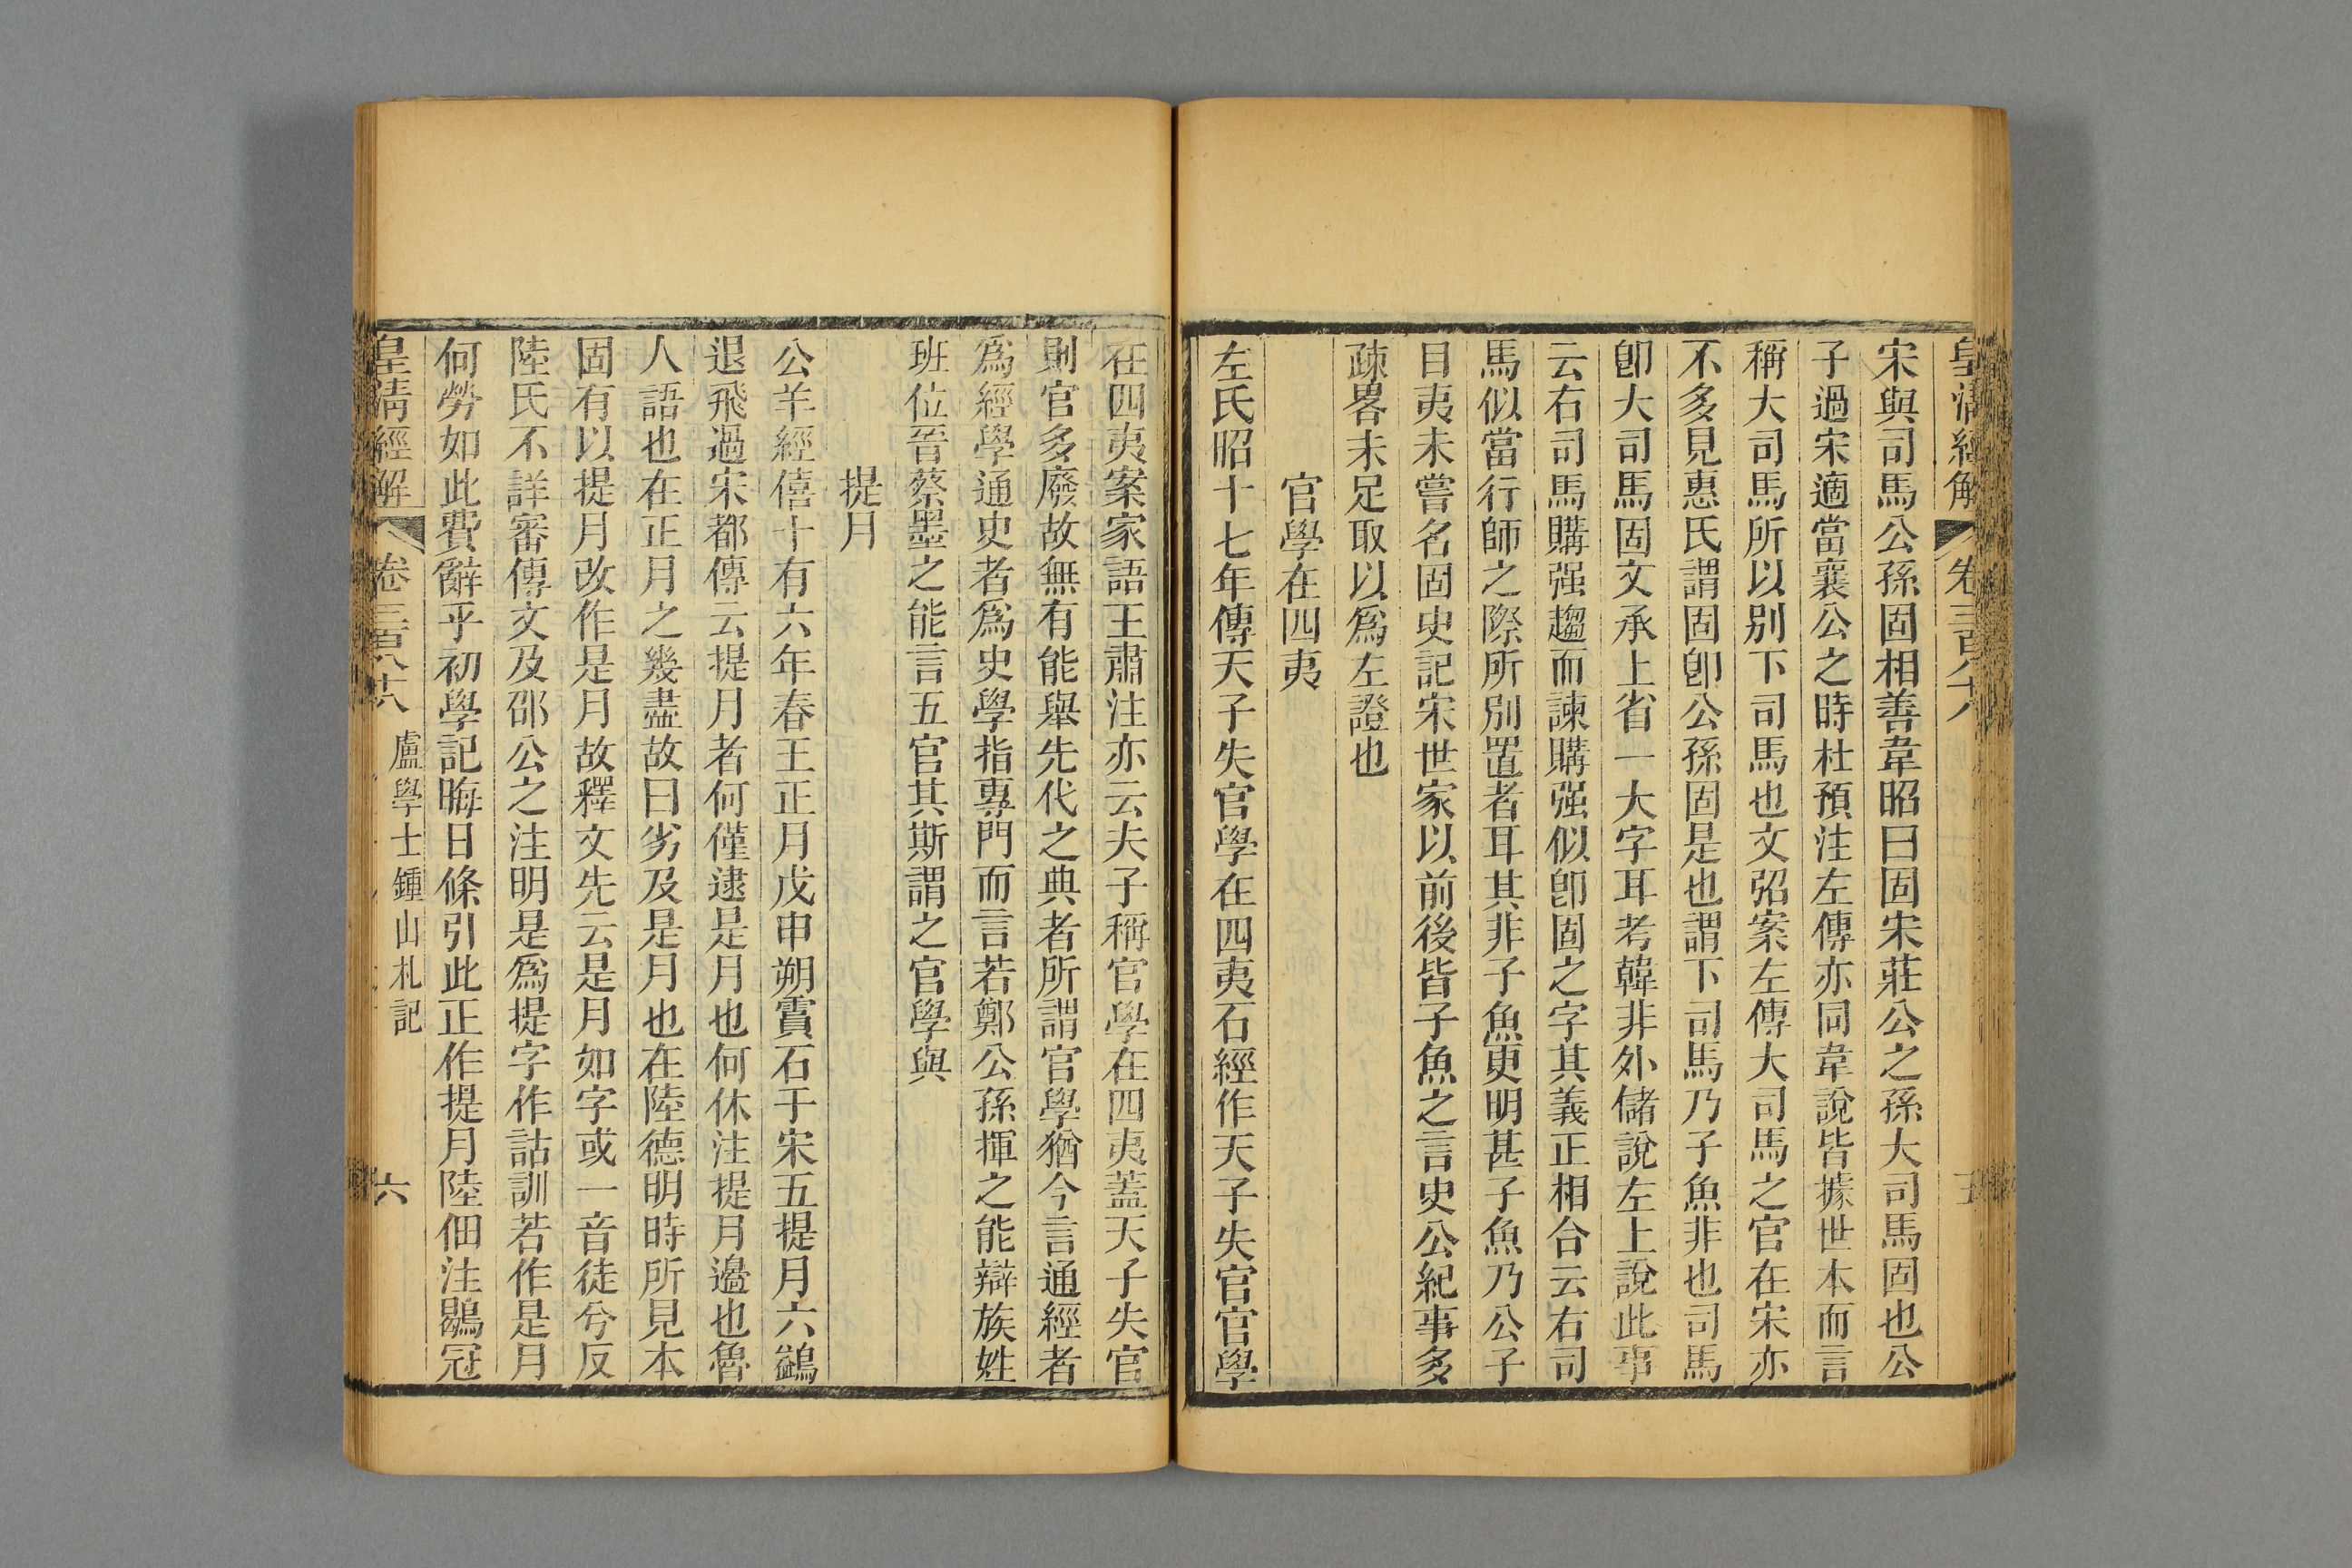 皇清經解 卷三百八十八 五
宋與司馬公孫固相善韋昭曰固宋莊公之孫大司馬固也公
子過宋適當襄公之時杜預注左傳亦同韋說皆據世本而言
稱大司馬所以別下司馬也文弨案左傳大司馬之官在宋亦
不多見惠氏謂固卽公孫固是也謂下司馬乃子魚非也司馬
卽大司馬固文承上省一大字耳考韓非外儲說左上說此事
云右司馬購强趨而諫購强似卽固之字其義正相合云右司
馬似當行師之際所別置者耳其非子魚更明甚子魚乃公子
目夷未嘗名固史記宋世家以前後皆子魚之言史公紀事多
疎畧未足取以爲左證也
官學在四夷
左氏昭十七年傳天子失官學在四夷石經作天子失官官學
在四夷案家語王肅注亦云夫子稱官學在四夷蓋天子失官
則官多廢故無有能舉先代之典者所謂官學猶今言通經者
爲經學通史者爲史學指專門而言若鄭公孫揮之能辯族姓
班位晉蔡墨之能言五官其斯謂之官學與
提月
公羊經僖十有六年春王正月戊申朔霣石于宋五提月六鷁
退飛過宋都傳云提月者何僅逮是月也何休注提月邉也魯
人語也在正月之幾盡故曰劣及是月也在陸德明時所見本
固有以提月改作是月故釋文先云是月如字或一音徒兮反
陸氏不詳審傳文及邵公之注明是爲提字作詁訓若作是月
何勞如此費辭乎初學記晦日條引此正作提月陸佃注鶡冠
皇淸經解 卷三百八十八 盧學士鍾山札記 六